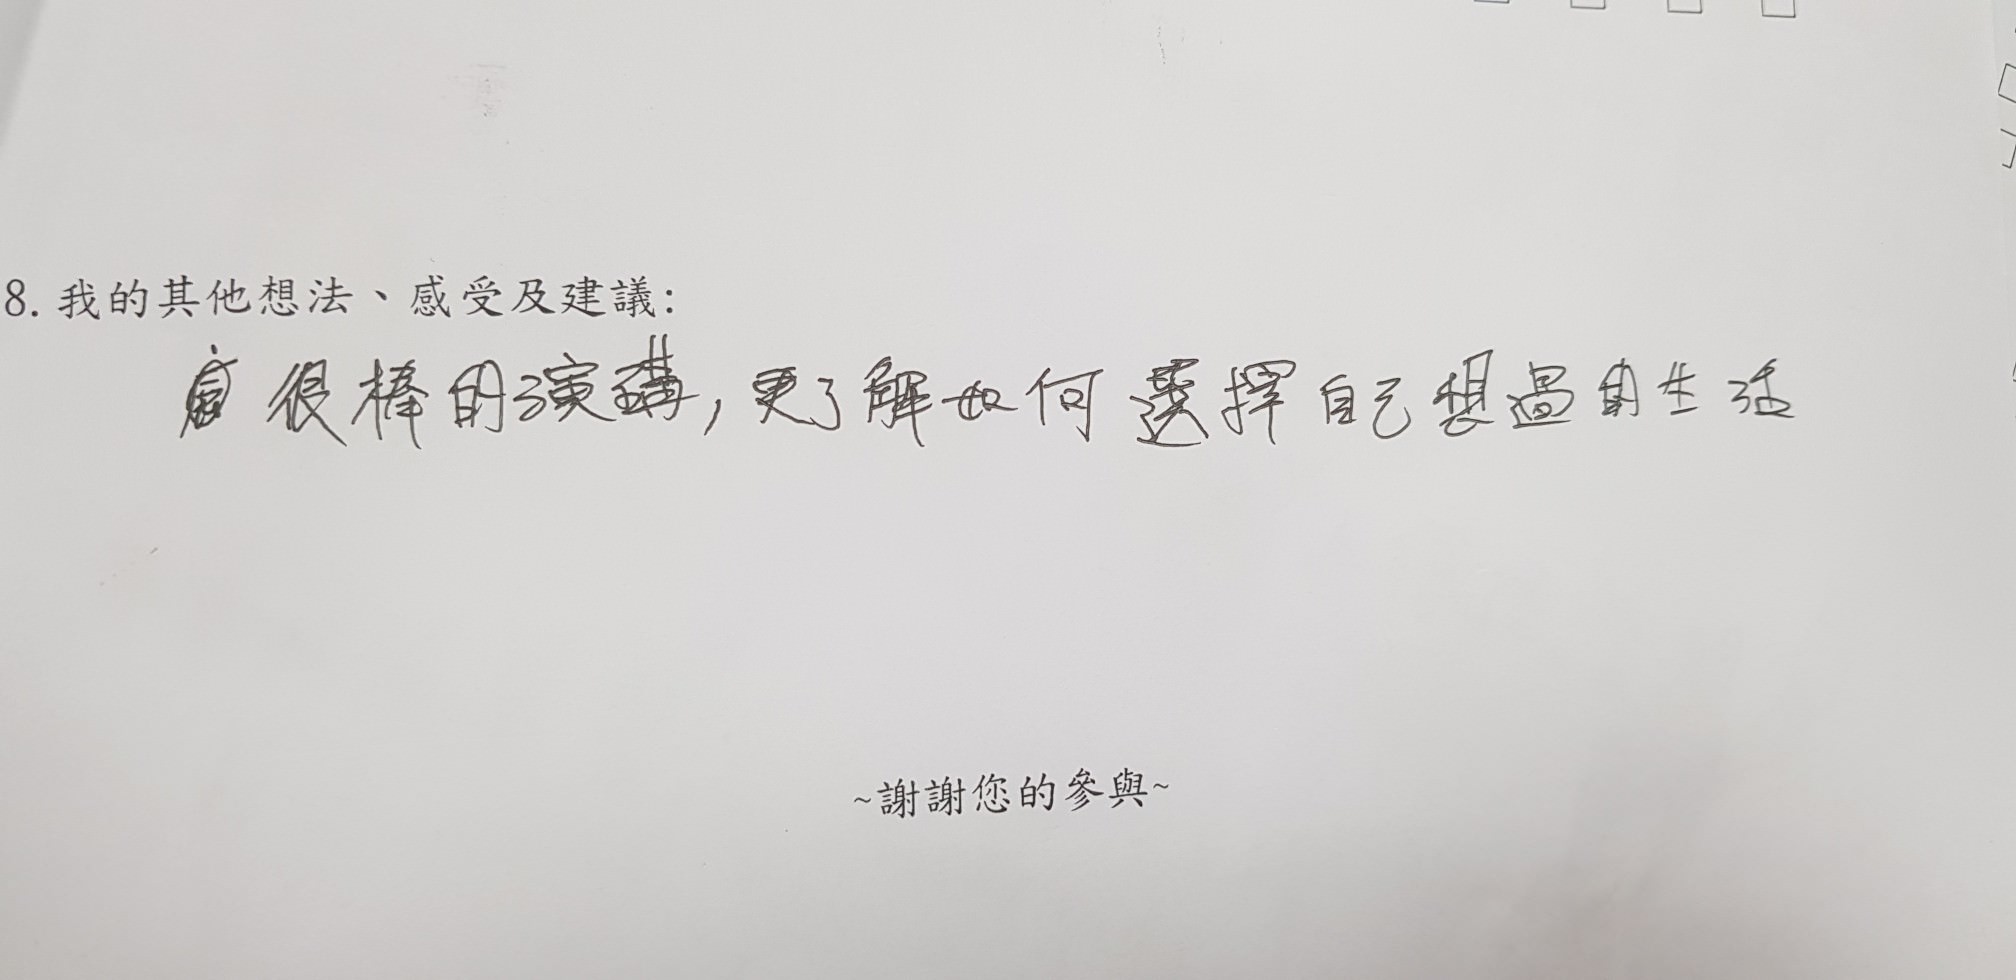 8. 我的其他想法、感受及建議:
很棒的演講,更了解如何選擇自己想過的生活
~謝謝您的參與~